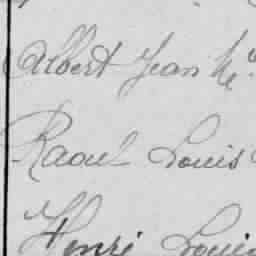 Albert Jean
Raoul Louis
Henri Louis